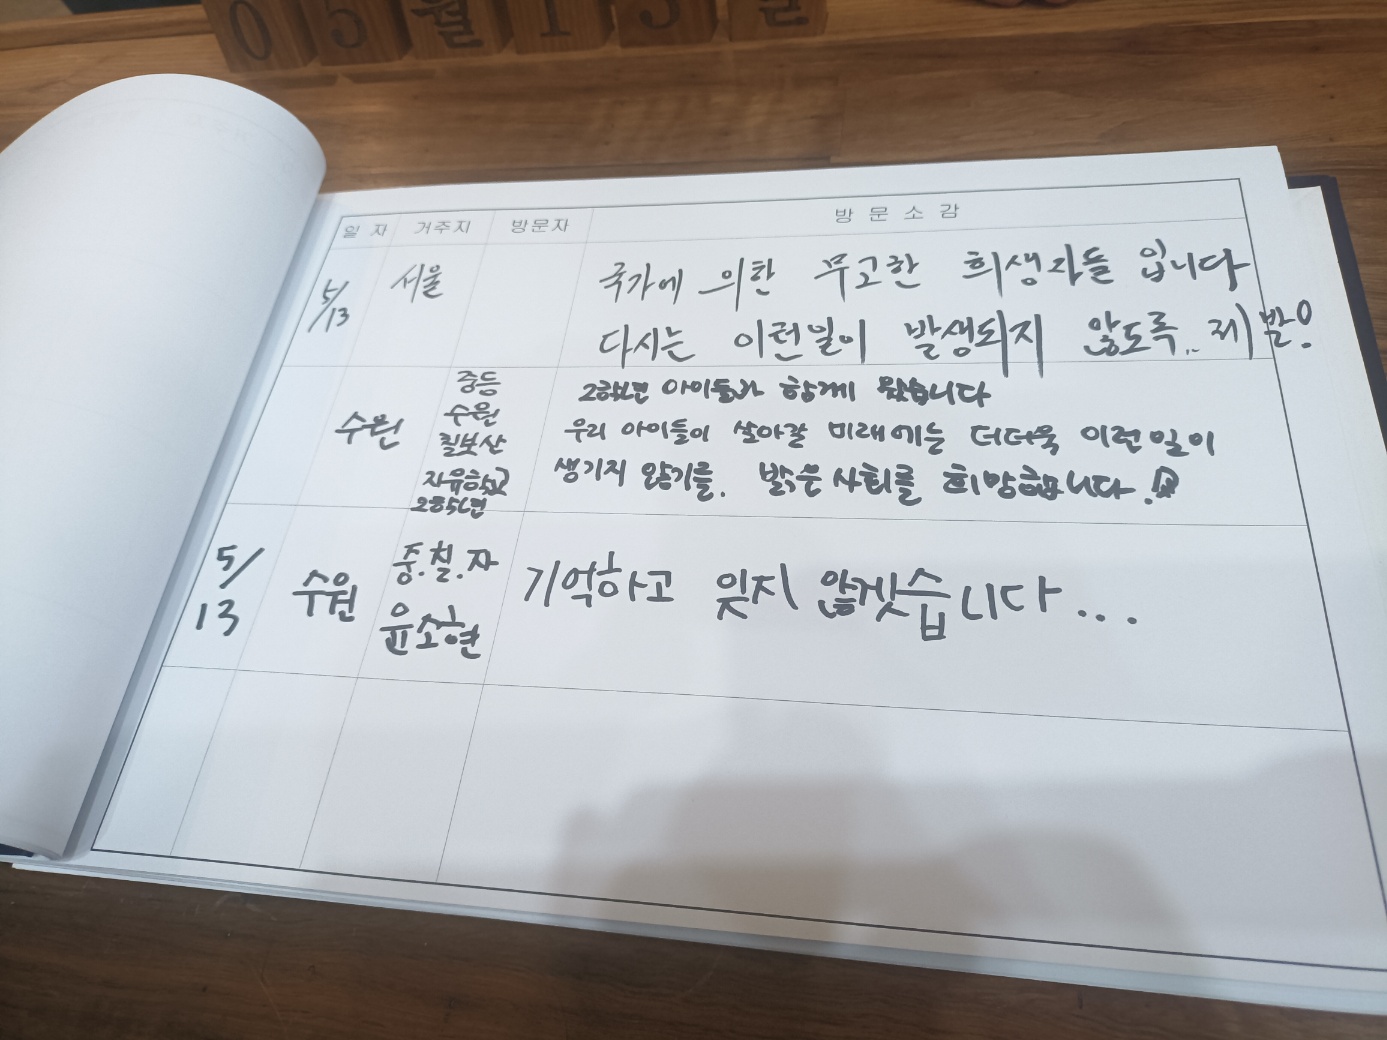 05월13일
일 자 거주지 방문자 방 문 소 감
5/13 서울 국가에 의한 무고한 희생자들 입니다
다시는 이런일이 발생되지 않도록.. 제발!
수원
중등
수원
칠보산
자유학교
2학년
2학년 아이들과 함께 왔습니다
우리 아이들이 살아갈 미래에는 더더욱 이런일이
생기지 않기를. 밝은 사회를 희망합니다.
5/13 수원
중.칠.자
윤소현
기억하고 잊지 않겠습니다...